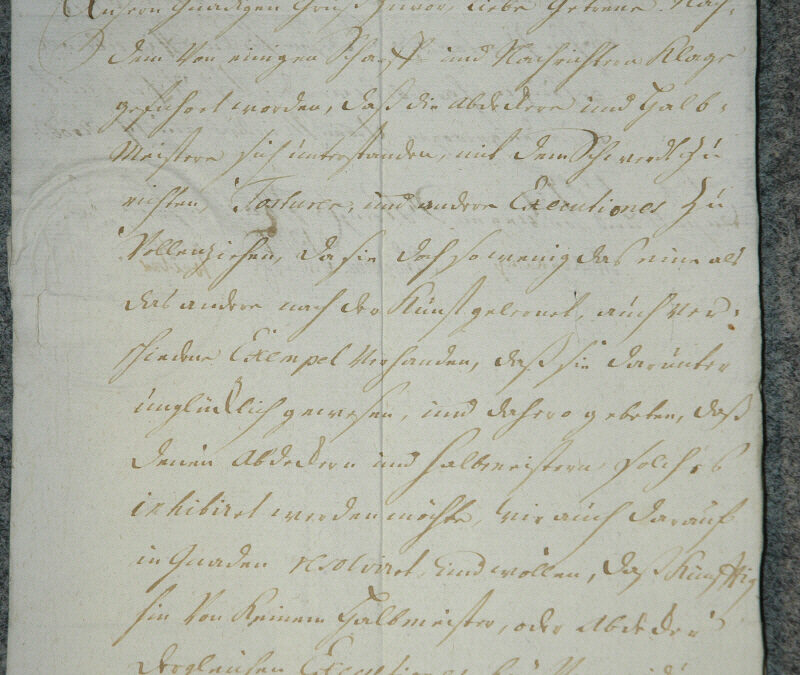 Unsern Gnädigen Gruß zuvor, Liebe Getreue. Nach-
dem von einigen Scharff- und Nachrichtern Klage
geführet worden, daß die Abdeckere und Halb-
Meistere sich unterstanden, mit dem Schwerdt zu
richten, Torturen, und andere Executiones zu
Vollenziehen, da sie doch so wenig das eine als
das andere nach der Kunst gelernet, auch ver-
schiedene Exempel verhanden, daß sie darunter
unglücklich gewesen, und dahero gebeten, daß
denen Abdeckern und Halbmeistern solches
inhibiret werden möchte, wir auch darauf
in Gnaden resolviret, und wollen, daß künfftig
hin von keinem Halbmeister, oder Abdecker
dergleichen Executiones bey